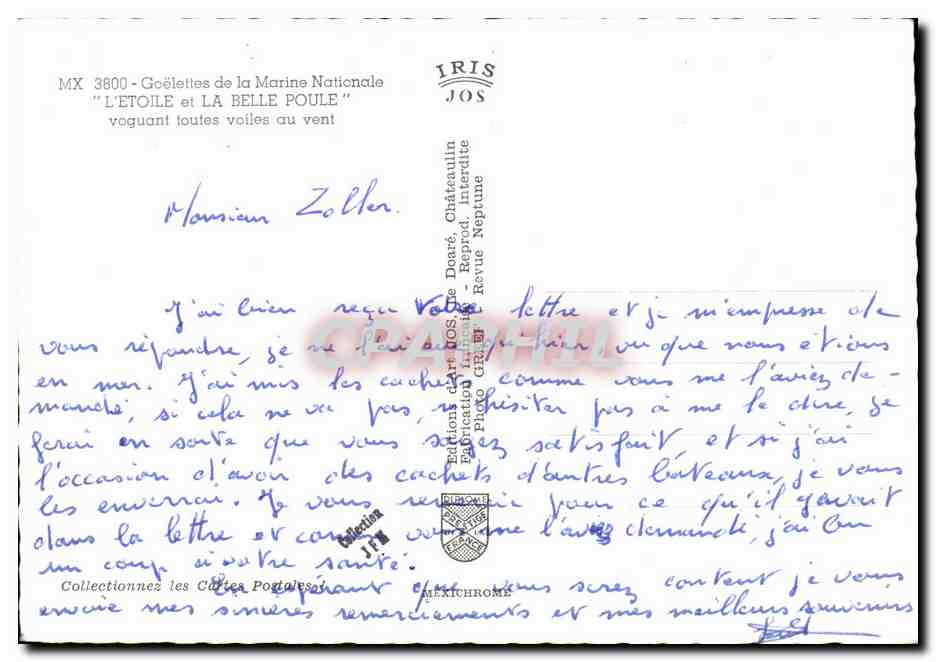 MX 3800 - Goëlettes de la Marine Nationale
" L'ETOILE et LA BELLE POULE "
voguant toutes voiles au vent
IRIS
JOS
Editions d'Art JOS, Le Doaré, Châteaulin
Fabrication française - Reprod. interdite
Photo GRUEF Revue Neptune
Monsieur Zoller.
J'ai bien reçu Votre lettre et je m'empresse de
vous répondre, je ne l'ai eu qu'hier vu que nous etions
en mer. J'ai mis les cachets comme vous me l'aviez de-
mandé, si cela ne va pas, n'hésiter pas à me le dire, je
ferai en sorte que vous soyez satisfait, et si j'ai
l'occasion d'avoir des cachets d'autres bateaux, je vous
les enverrai. Je vous remercie pour ce qu'il y avait
dans la lettre et comme vous me l'aviez demandé, j'ai bu
un coup à votre santé.
En espérant que vous serez content je vous
envoie mes sincères remerciements et mes meilleurs souvenirs
DIPLOME
PRESTIGE
FRANCE
Collection
JFM
Collectionnez les Cartes Postales !
MEXICHROME
CPAPHIL